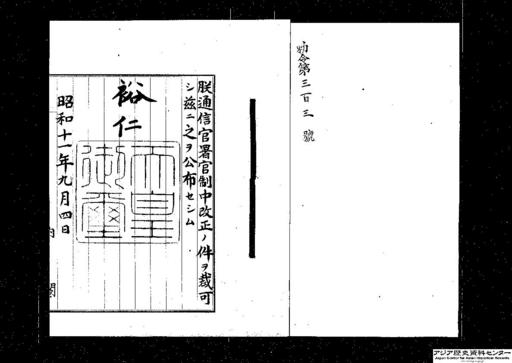 勅令第三百三號
朕通信官署官制中改正ノ件ヲ裁可
シ茲ニ之ヲ公布セシム
裕仁
天皇
御璽
昭和十一年九月四日
内閣
アジア歴史資料センター
Japan Center for Asian Historical Records